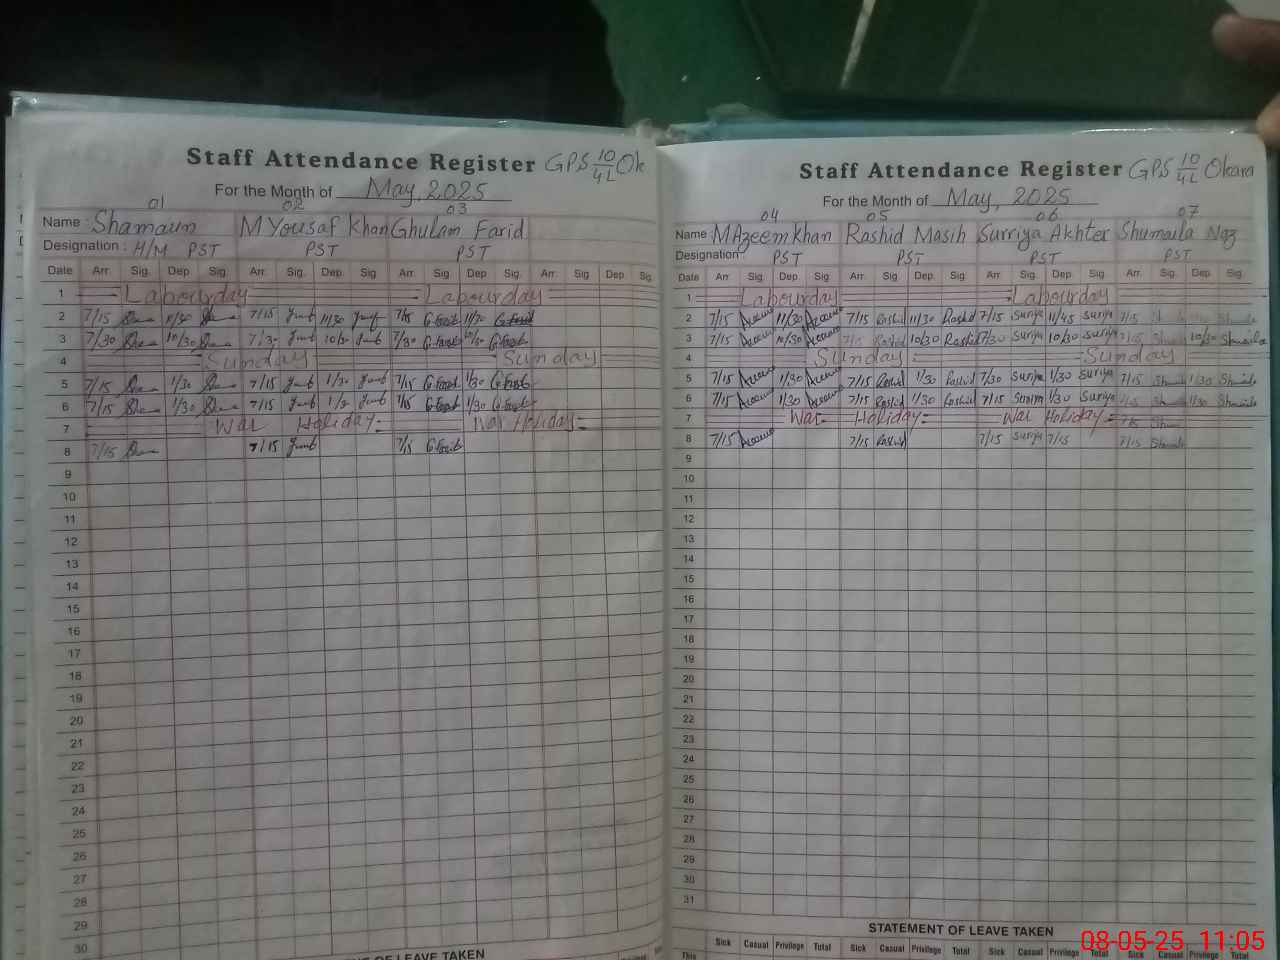 Staff Attendance Register GPS 10/4L Ok
For the Month of May, 2025
01 02 03
Name : Shamaun M Yousaf Khan Ghulam Farid
Designation : H/M PST PST PST
Date Arr. Sig. Dep. Sig. Arr. Sig. Dep. Sig. Arr. Sig. Dep. Sig. Arr. Sig. Dep. Sig.
1 Labourday Labourday
2 7/15 11/30 7/15 11/30 7/15 G Farid 11/30 G Farid
3 7/30 10/30 10/30 7/30 G Farid 10/30 G Farid
4 Sunday Sunday
5 7/15 1/30 7/15 1/30 7/15 G Farid 1/30 G Farid
6 7/15 1/30 7/15 7/15 G Farid 1/30 G Farid
7 War Holiday War Holiday
8 7/15 7/15 7/15 G Farid
9
10
11
12
13
14
15
16
17
18
19
20
21
22
23
24
25
26
27
28
29
30
OF LEAVE TAKEN
Staff Attendance Register GPS 10/4L Okara
For the Month of May, 2025
04 05 06 07
Name : M Azeem Khan Rashid Masih Surriya Akhter Shumaila Naz
Designation PST PST PST PST
Date Arr. Sig. Dep. Sig. Arr. Sig. Dep. Sig. Arr. Sig. Dep. Sig. Arr. Sig. Dep. Sig.
1 Labourday Labourday
2 7/15 11/30 7/15 Rashid 11/30 Rashid 7/15 Suriya 11/45 Suriya 7/15
3 7/15 10/30 7/15 Rashid 10/30 Rashid 7/30 Suriya 10/30 Suriya 10/30 Shumaila
4 Sunday Sunday
5 7/15 1/30 7/15 Rashid 1/30 Rashid 7/30 Suriya 1/30 Suriya 7/15 1/30
6 7/15 1/30 7/15 Rashid 1/30 Rashid 7/15 Suriya 1/30 Suriya 7/15 1/30
7 War Holiday War Holiday 7/15
8 7/15 7/15 Rashid 7/15 Suriya 7/15 7/15
9
10
11
12
13
14
15
16
17
18
19
20
21
22
23
24
25
26
27
28
29
30
31
STATEMENT OF LEAVE TAKEN
This Sick Casual Privilege Total Sick Casual Privilege Total Sick Casual Privilege Total Sick Casual Privilege Total
08-05-25 11:05